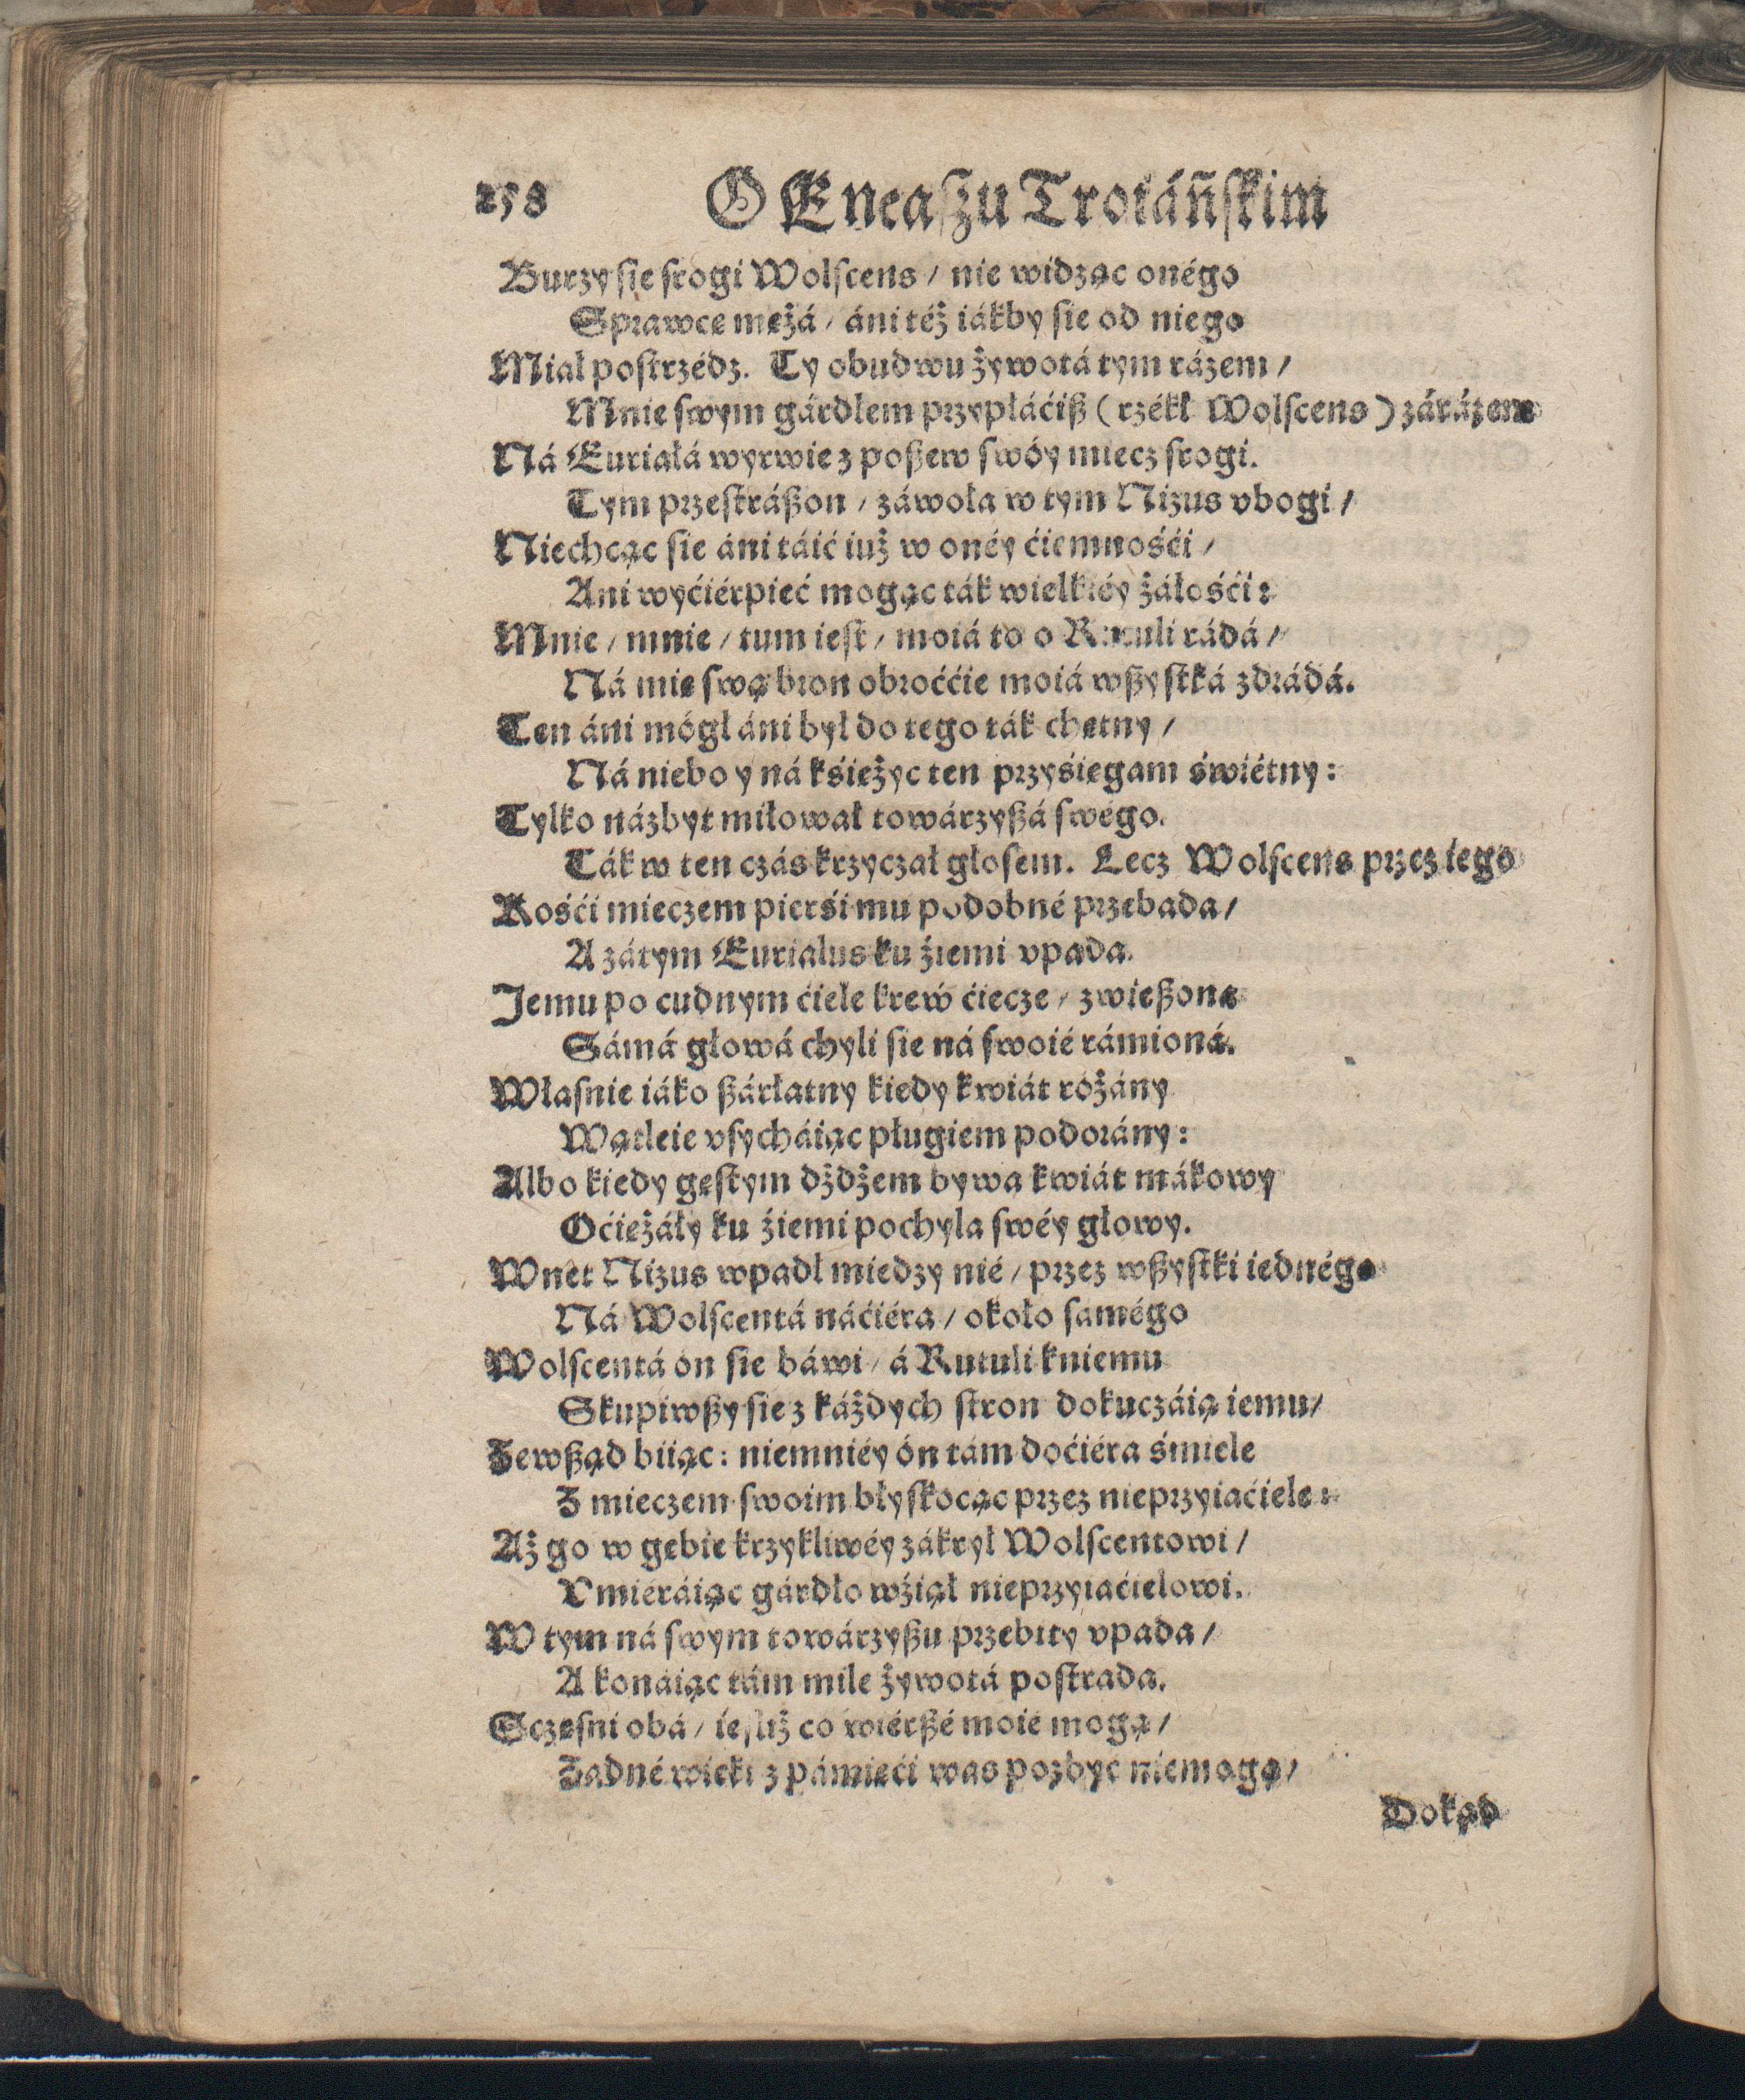 258 O Eneaszu Troiáńskim
Burzy sie srogi Wolscens / nie widząc onégo
Sprawce mężá / áni też iákby sie od niego
Miał postrzédz. Ty obudwu żywotá tym rázem /
Mnie swym gárdłem przypłáćiß (rzékł Wolscens) zárázem
Ná Euriałá wyrwie z poßew swóy miecz srogi.
Tym przestráßon / záwoła w tym Nizus vbogi /
Niechcąc sie áni táić iuż w onéy ćiemnośći /
Ani wyćiérpieć mogąc ták wielkiéy żáłośći:
Mnie / mnie / tum iest / moiá to o Rutuli rádá /
Ná mie swą bron obroććie moiá wßystká zdrádá.
Ten áni mógł áni był do tego ták chętny /
Ná niebo y ná kśiężyc ten przyśięgam świétny:
Tylko názbyt miłował towárzyßá swégo.
Ták w ten czás krzyczał głosem. Lecz Wolscens przez iego
Kośći mieczem pierśi mu podobné przebada /
A zátym Eurialus ku źiemi vpada.
Jemu po cudnym ćiele krew ćiecze / zwießona
Sámá głowá chyli sie ná swoié rámioná.
Własnie iáko ßárłatny kiedy kwiát różány
Wątleie vsycháiąc pługiem podorány:
Albo kiedy gęstym dżdżem bywa kwiát mákowy
Oćiężáły ku źiemi pochyla swéy głowy.
Wnet Nizus wpadł miedzy nié / przez wßystki iednégo
Ná Wolscentá náćiéra / około samégo
Wolscentá ón sie báwi / á Rutuli kniemu
Skupiwßy sie z káżdych stron dokuczáią iemu /
Zewßąd biiąc: niemniéy ón tám doćiéra śmiele
Z mieczem swoim błyskocąc przez nieprzyiaćiele:
Aż go w gębie krzykliwéy zákrył Wolscentowi /
Vmiéráiąc gárdło wźiął nieprzyiaćielowi.
W tym ná swym towárzyßu przebity vpada /
A konáiąc tám mile żywotá postrada.
Sczęsni obá / iesliż co wiérßé moié mogą /
Żadné wieki z pámięći was pozbyć niemogą /
Dokąd